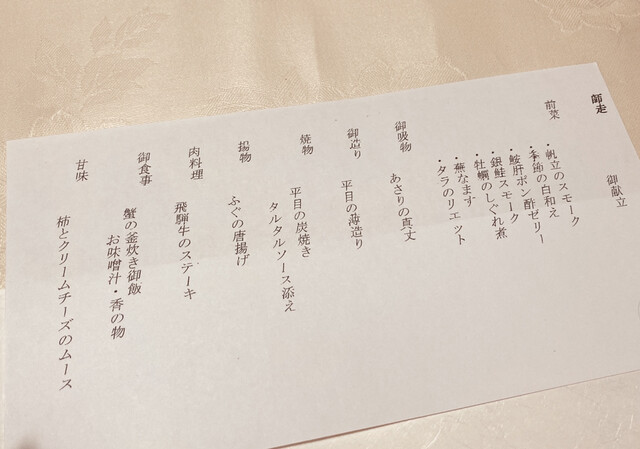 師走
御献立
前菜
・帆立のスモーク
・季節の白和え
・鮟肝ポン酢ゼリー
・銀鮭スモーク
・牡蠣のしぐれ煮
・蕪なます
・タラのリエット
御吸物
あさりの真丈
御造り
平目の薄造り
焼物
平目の炭焼き
タルタルソース添え
揚物
ふぐの唐揚げ
肉料理
飛騨牛のステーキ
御食事
蟹の釜炊き御飯
お味噌汁・香の物
甘味
柿とクリームチーズのムース